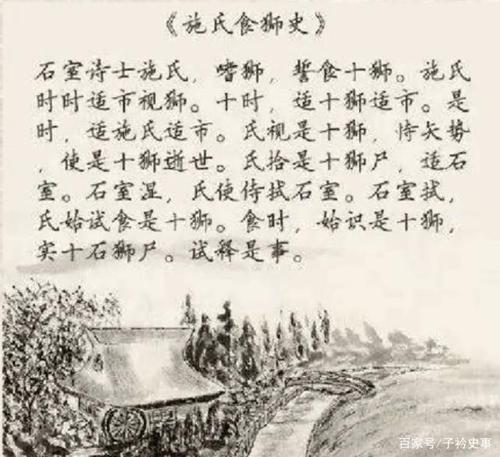 《施氏食狮史》
石室诗士施氏，嗜狮，誓食十狮。施氏
时时适市视狮。十时，适十狮适市。是
时，适施氏适市。氏视是十狮，恃矢势
，使是十狮逝世。氏拾是十狮尸，适石
室。石室湿，氏使侍拭石室。石室拭，
氏始试食是十狮。食时，始识是十狮，
实十石狮尸。试释是事。
百家号/子衿史事